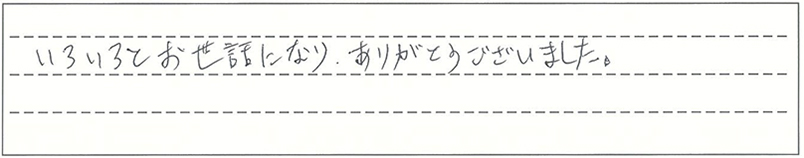 いろいろとお世話になり、ありがとうございました。